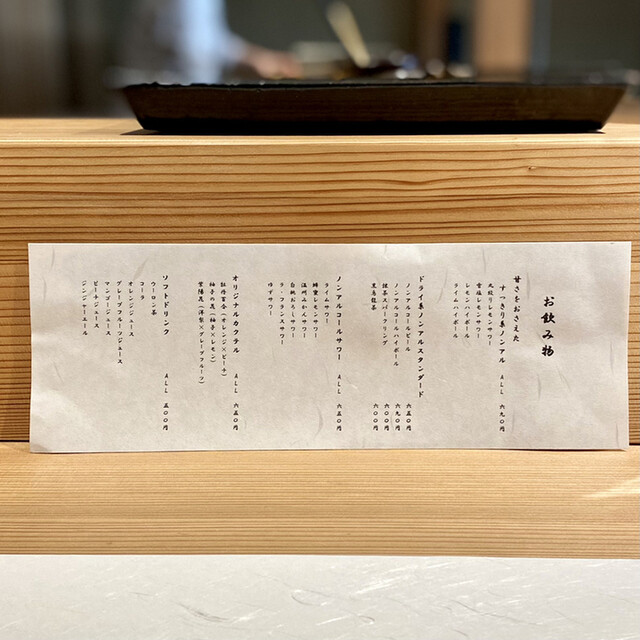 お飲み物
甘さをおさえた
すっきり系ノンアル ALL 六九〇円
大絞りレモンサワー
塩レモンサワー
レモンハイボール
ライムハイボール
ドライ系ノンアルスタンダード
ノンアルコールビール 六五〇円
ノンアルコールハイボール 六九〇円
抹茶スパークリング 六〇〇円
黒烏龍茶 六〇〇円
ノンアルコールサワー ALL 六五〇円
ライムサワー
蜂蜜レモンサワー
温州みかんサワー
白桃おろしサワー
ラ・フランスサワー
ゆずサワー
オリジナルカクテル ALL 六五〇円
牡丹百合(オレンジ×ピーチ)
柚子の花(柚子×レモン)
紫陽花(洋梨×グレープフルーツ)
ソフトドリンク ALL 五〇〇円
ウーロン茶
コーラ
オレンジジュース
グレープフルーツジュース
マンゴージュース
ピーチジュース
ジンジャーエール